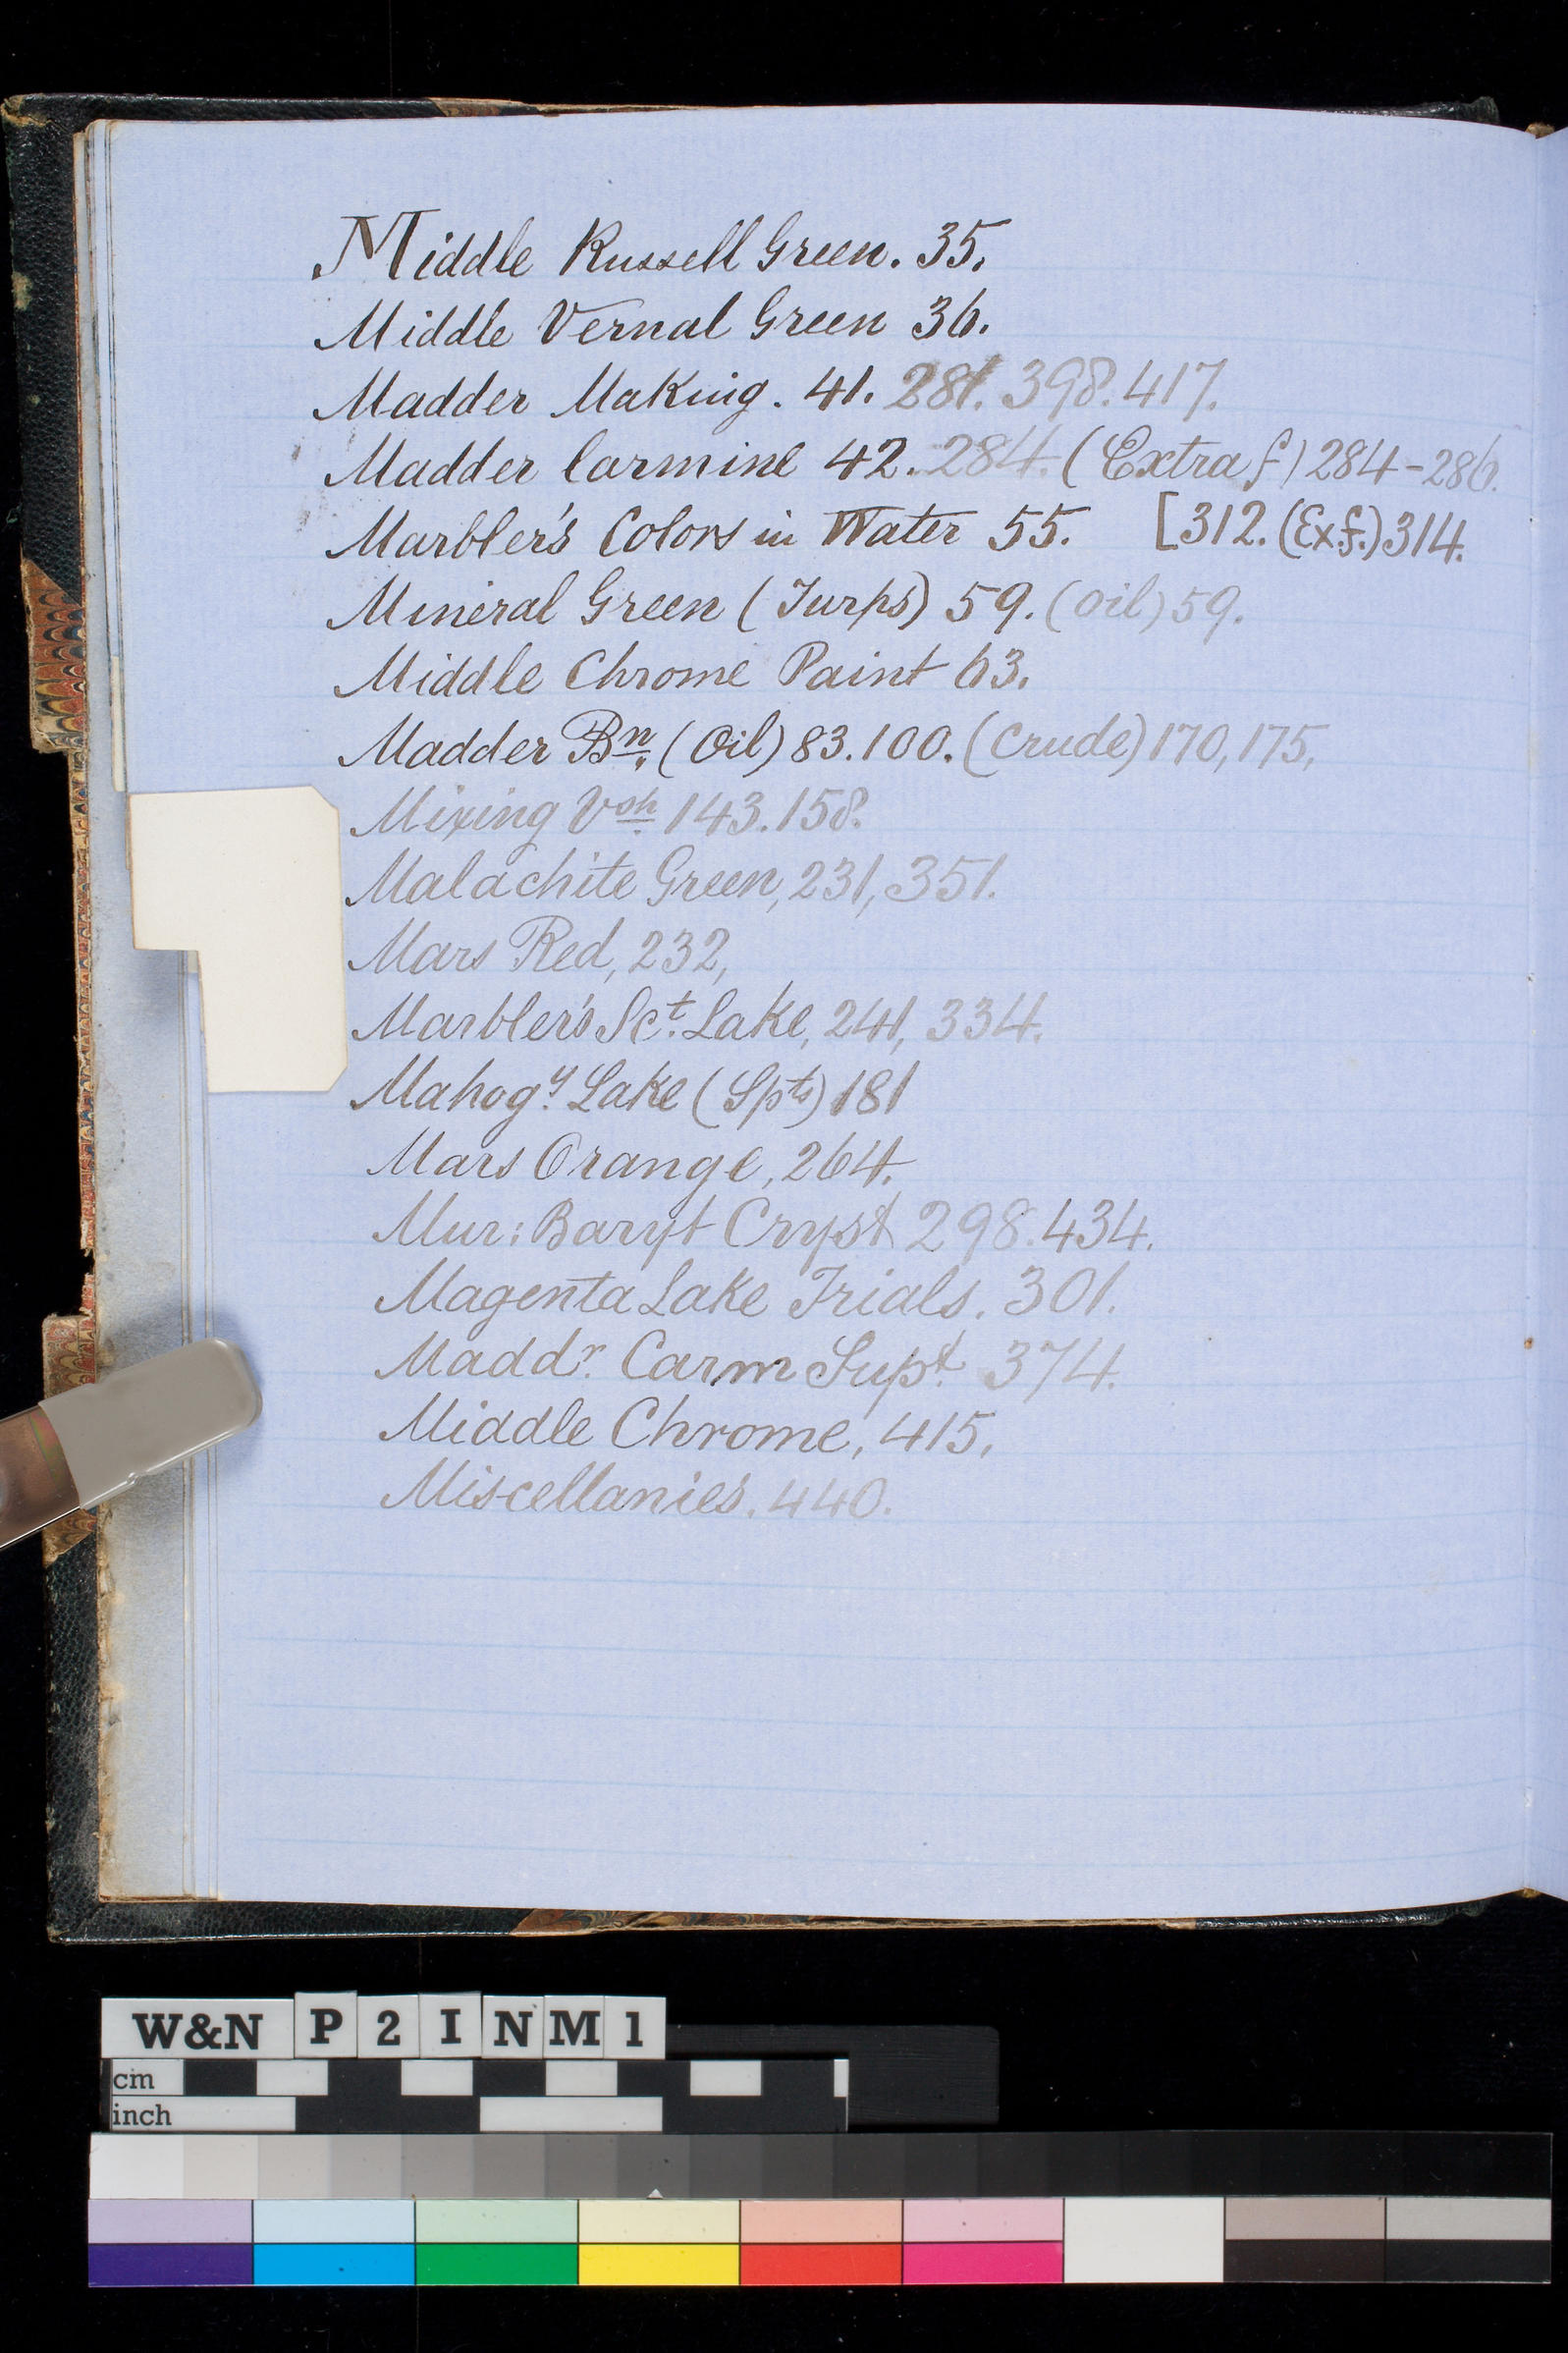 Middle Russell Green. 35.
Middle Vernal Green 36.
Madder Making. 41. 281. 398. 417.
Madder Carmine 42. 284. (Extra f) 284-286.
Marbler's Colors in Water 55. [312. (Ex.f.) 314.
Mineral Green (Turps) 59. (Oil) 59.
Middle Chrome Paint 63.
Madder Bn. (Oil) 83. 100. (Crude) 170, 175,
Mixing Vsh. 143. 158.
Malachite Green, 231, 351.
Mars Red, 232,
Marbler's Sct. Lake, 241, 334.
Mahogy. Lake (Spts) 181
Mars Orange, 264.
Mur: Baryt Cryst 298. 434.
Magenta Lake Trials. 301.
Maddr. Carm Supt. 374.
Middle Chrome, 415.
Miscellanies. 440.
W&N P 2 I N M 1
cm
inch